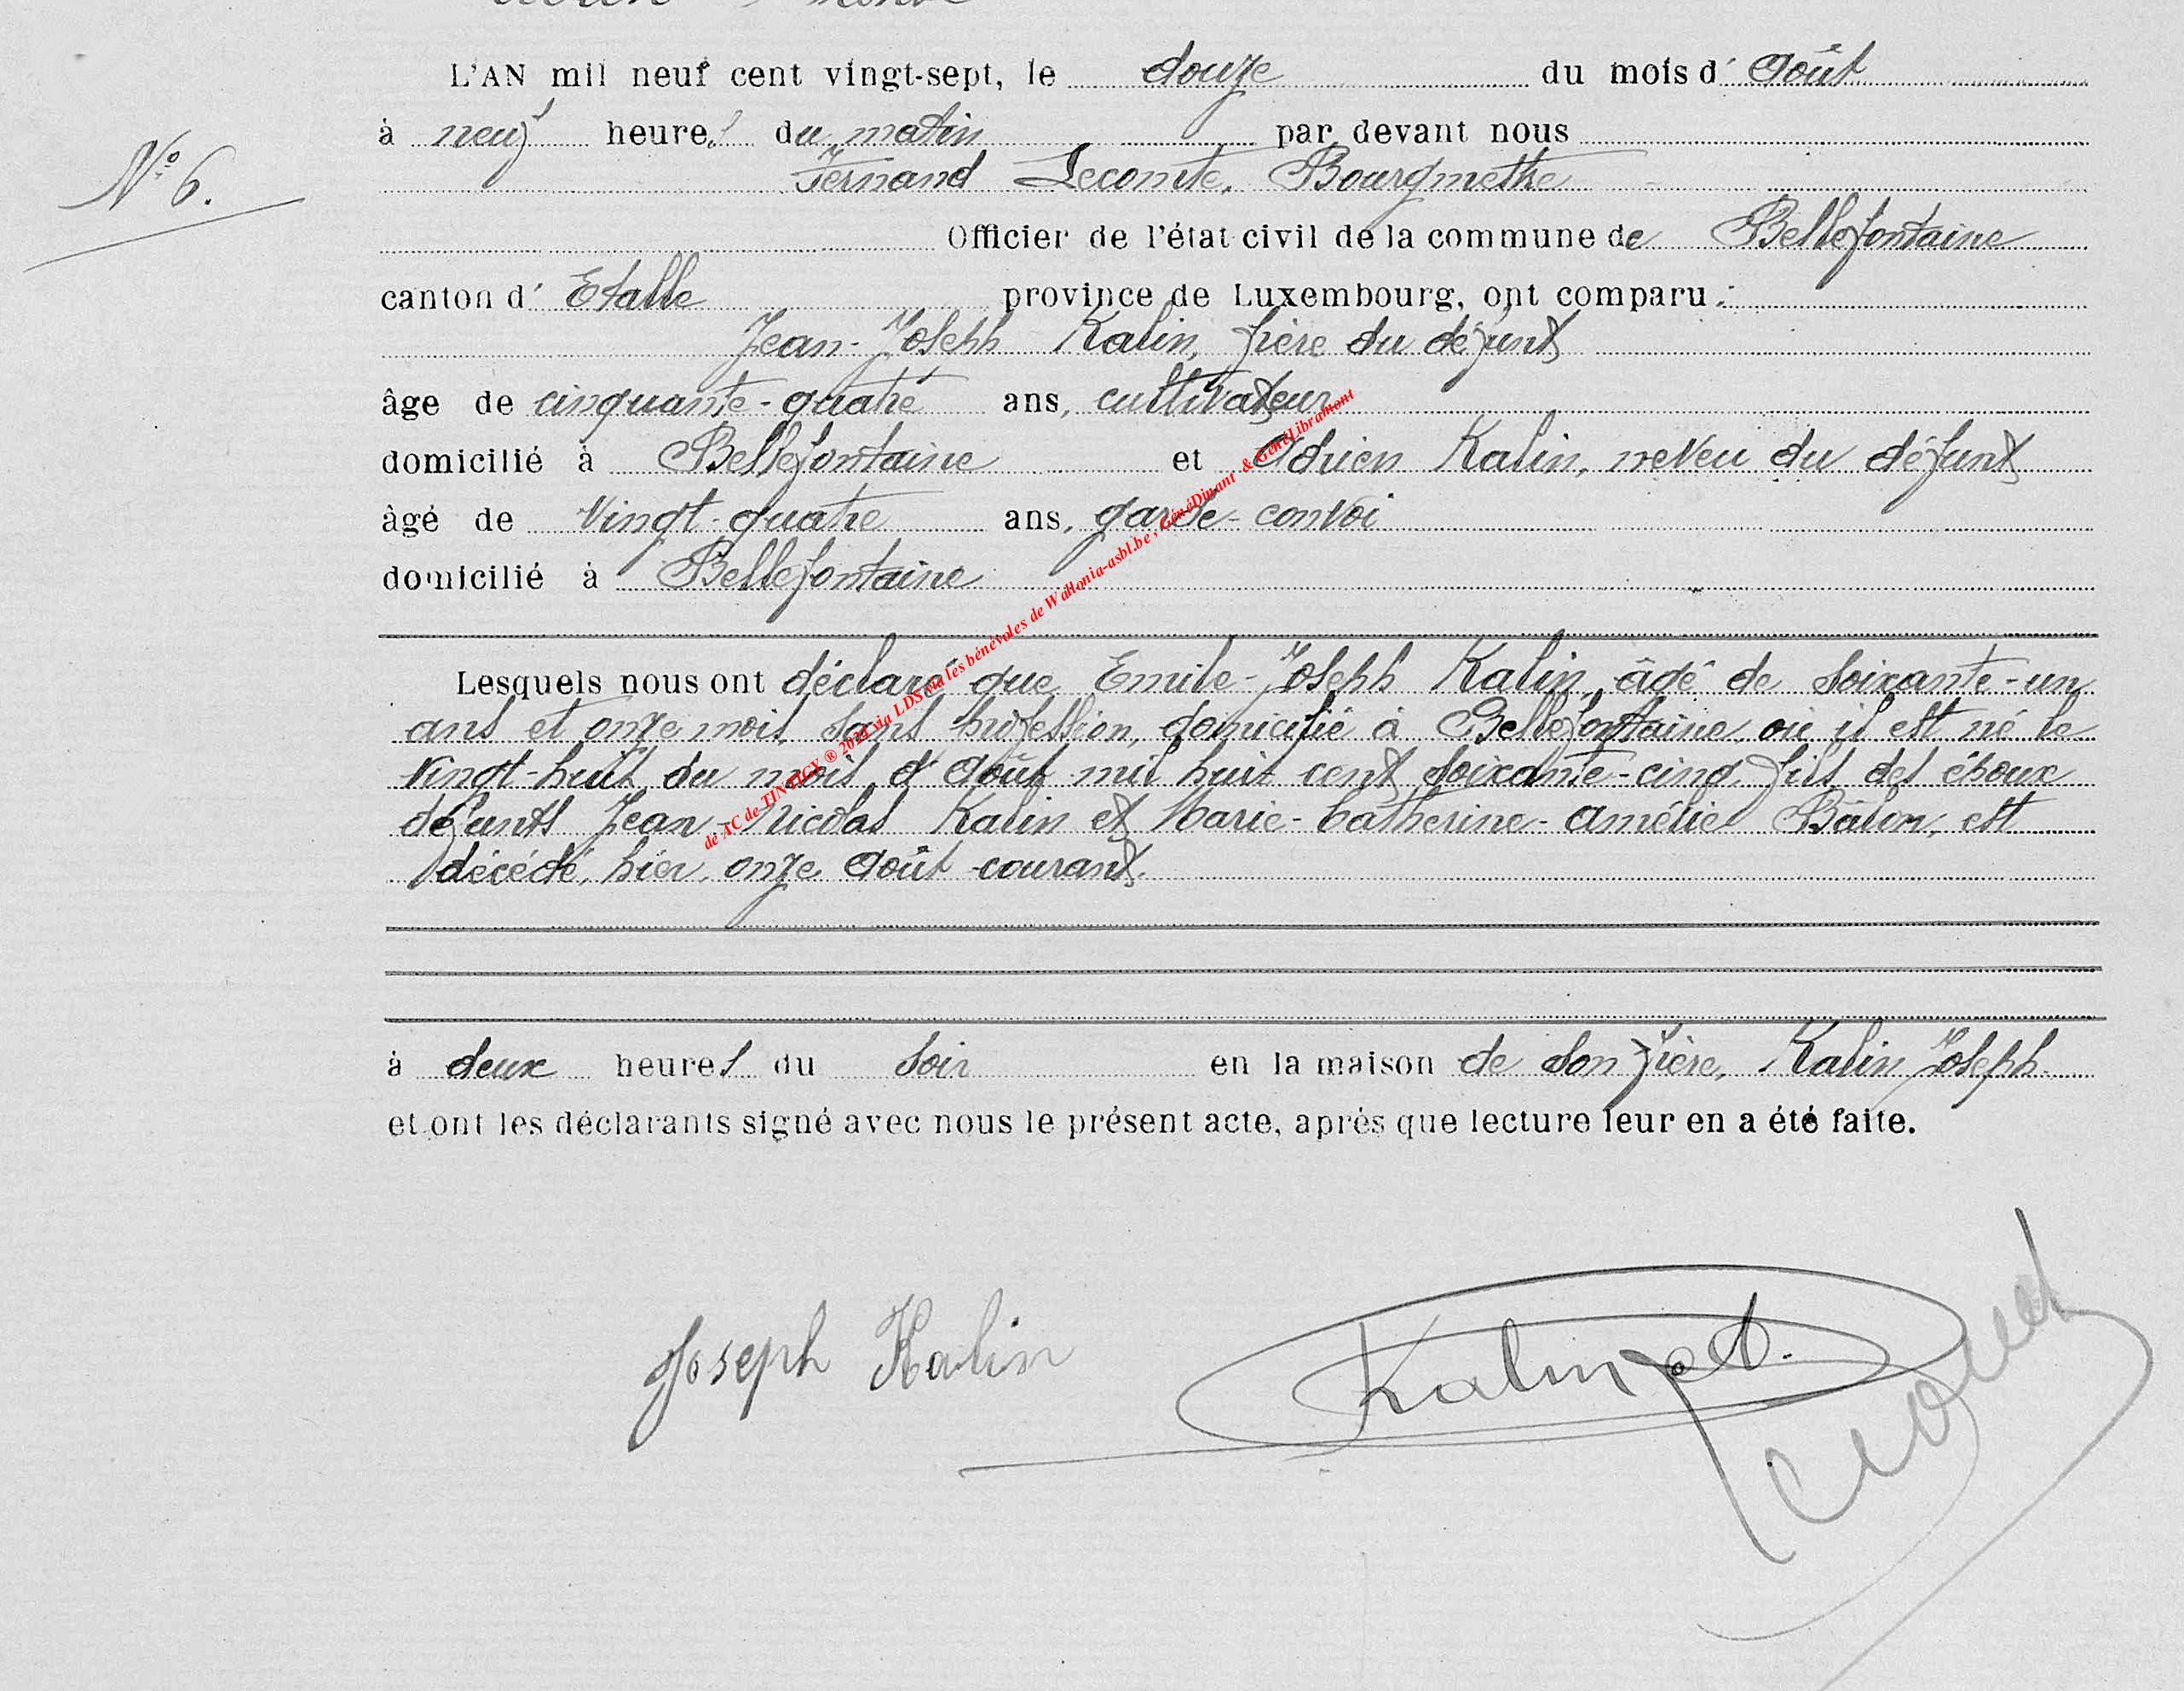 L'AN mil neuf cent vingt-sept, le douze du mois d' Août
à neuf heures du matin par devant nous
N° 6.
Fernand Lecomte, Bourgmestre
Officier de l'état civil de la commune de Bellefontaine
canton d' Etalle province de Luxembourg, ont comparu :
Jean-Joseph Kalin, frère du défunt
âge de cinquante-quatre ans, cultivateur
domicilié à Bellefontaine et Adrien Kalin, neveu du défunt
âgé de vingt-quatre ans, garde-convoi
domicilié à Bellefontaine
Lesquels nous ont déclaré que Emile-Joseph Kalin, âgé de soixante-un
ans et onze mois, sans profession, domicilié à Bellefontaine, où il est né le
vingt-huit du mois d'Août mil huit cent soixante-cinq, fils des époux
défunts Jean-Nicolas Kalin et Marie-Catherine-Amélie Balon, est
décédé, hier, onze Août courant.
à deux heures du soir en la maison de son frère, Kalin Joseph.
et ont les déclarants signé avec nous le présent acte, après que lecture leur en a été faite.
Joseph Kalin
Kalin ad.
de AC de TINTIGNY ® 2024 via LDS via les bénévoles de Wallonia-asbl.be , GénéDinant & GénéLibramont